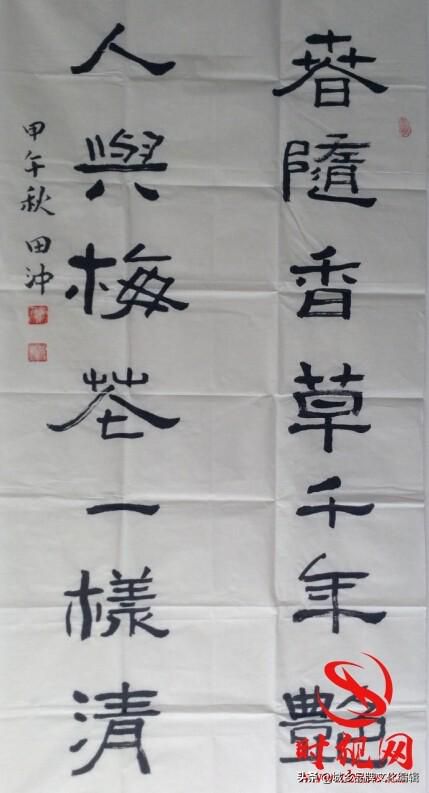 春隨香草千年豔
人與梅花一樣清
甲午秋 田沖
时视网
头条@城乡品牌文化编辑